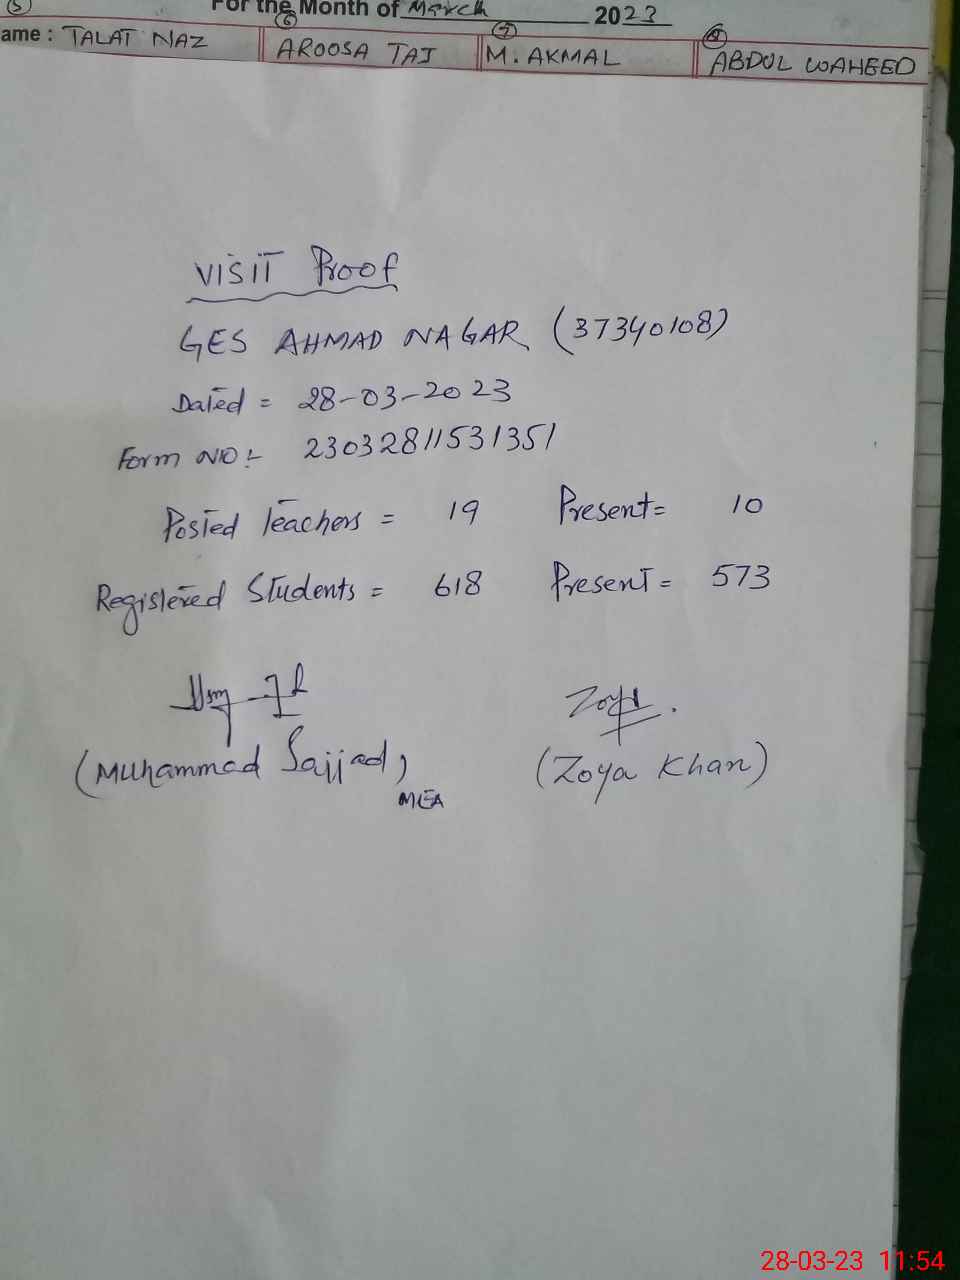 5
For the Month of March 2023
6 7 8
ame : TALAT NAZ AROOSA TAJ M. AKMAL ABDUL WAHEED
VISIT Proof
GES AHMAD NAGAR (37340108)
Dated = 28-03-2023
Form NO:- 23032811531351
Posted Teachers = 19 Present= 10
Registered Students = 618 Present = 573
Zoya
(Muhammad Sajjad) (Zoya Khan)
MEA
28-03-23 11:54